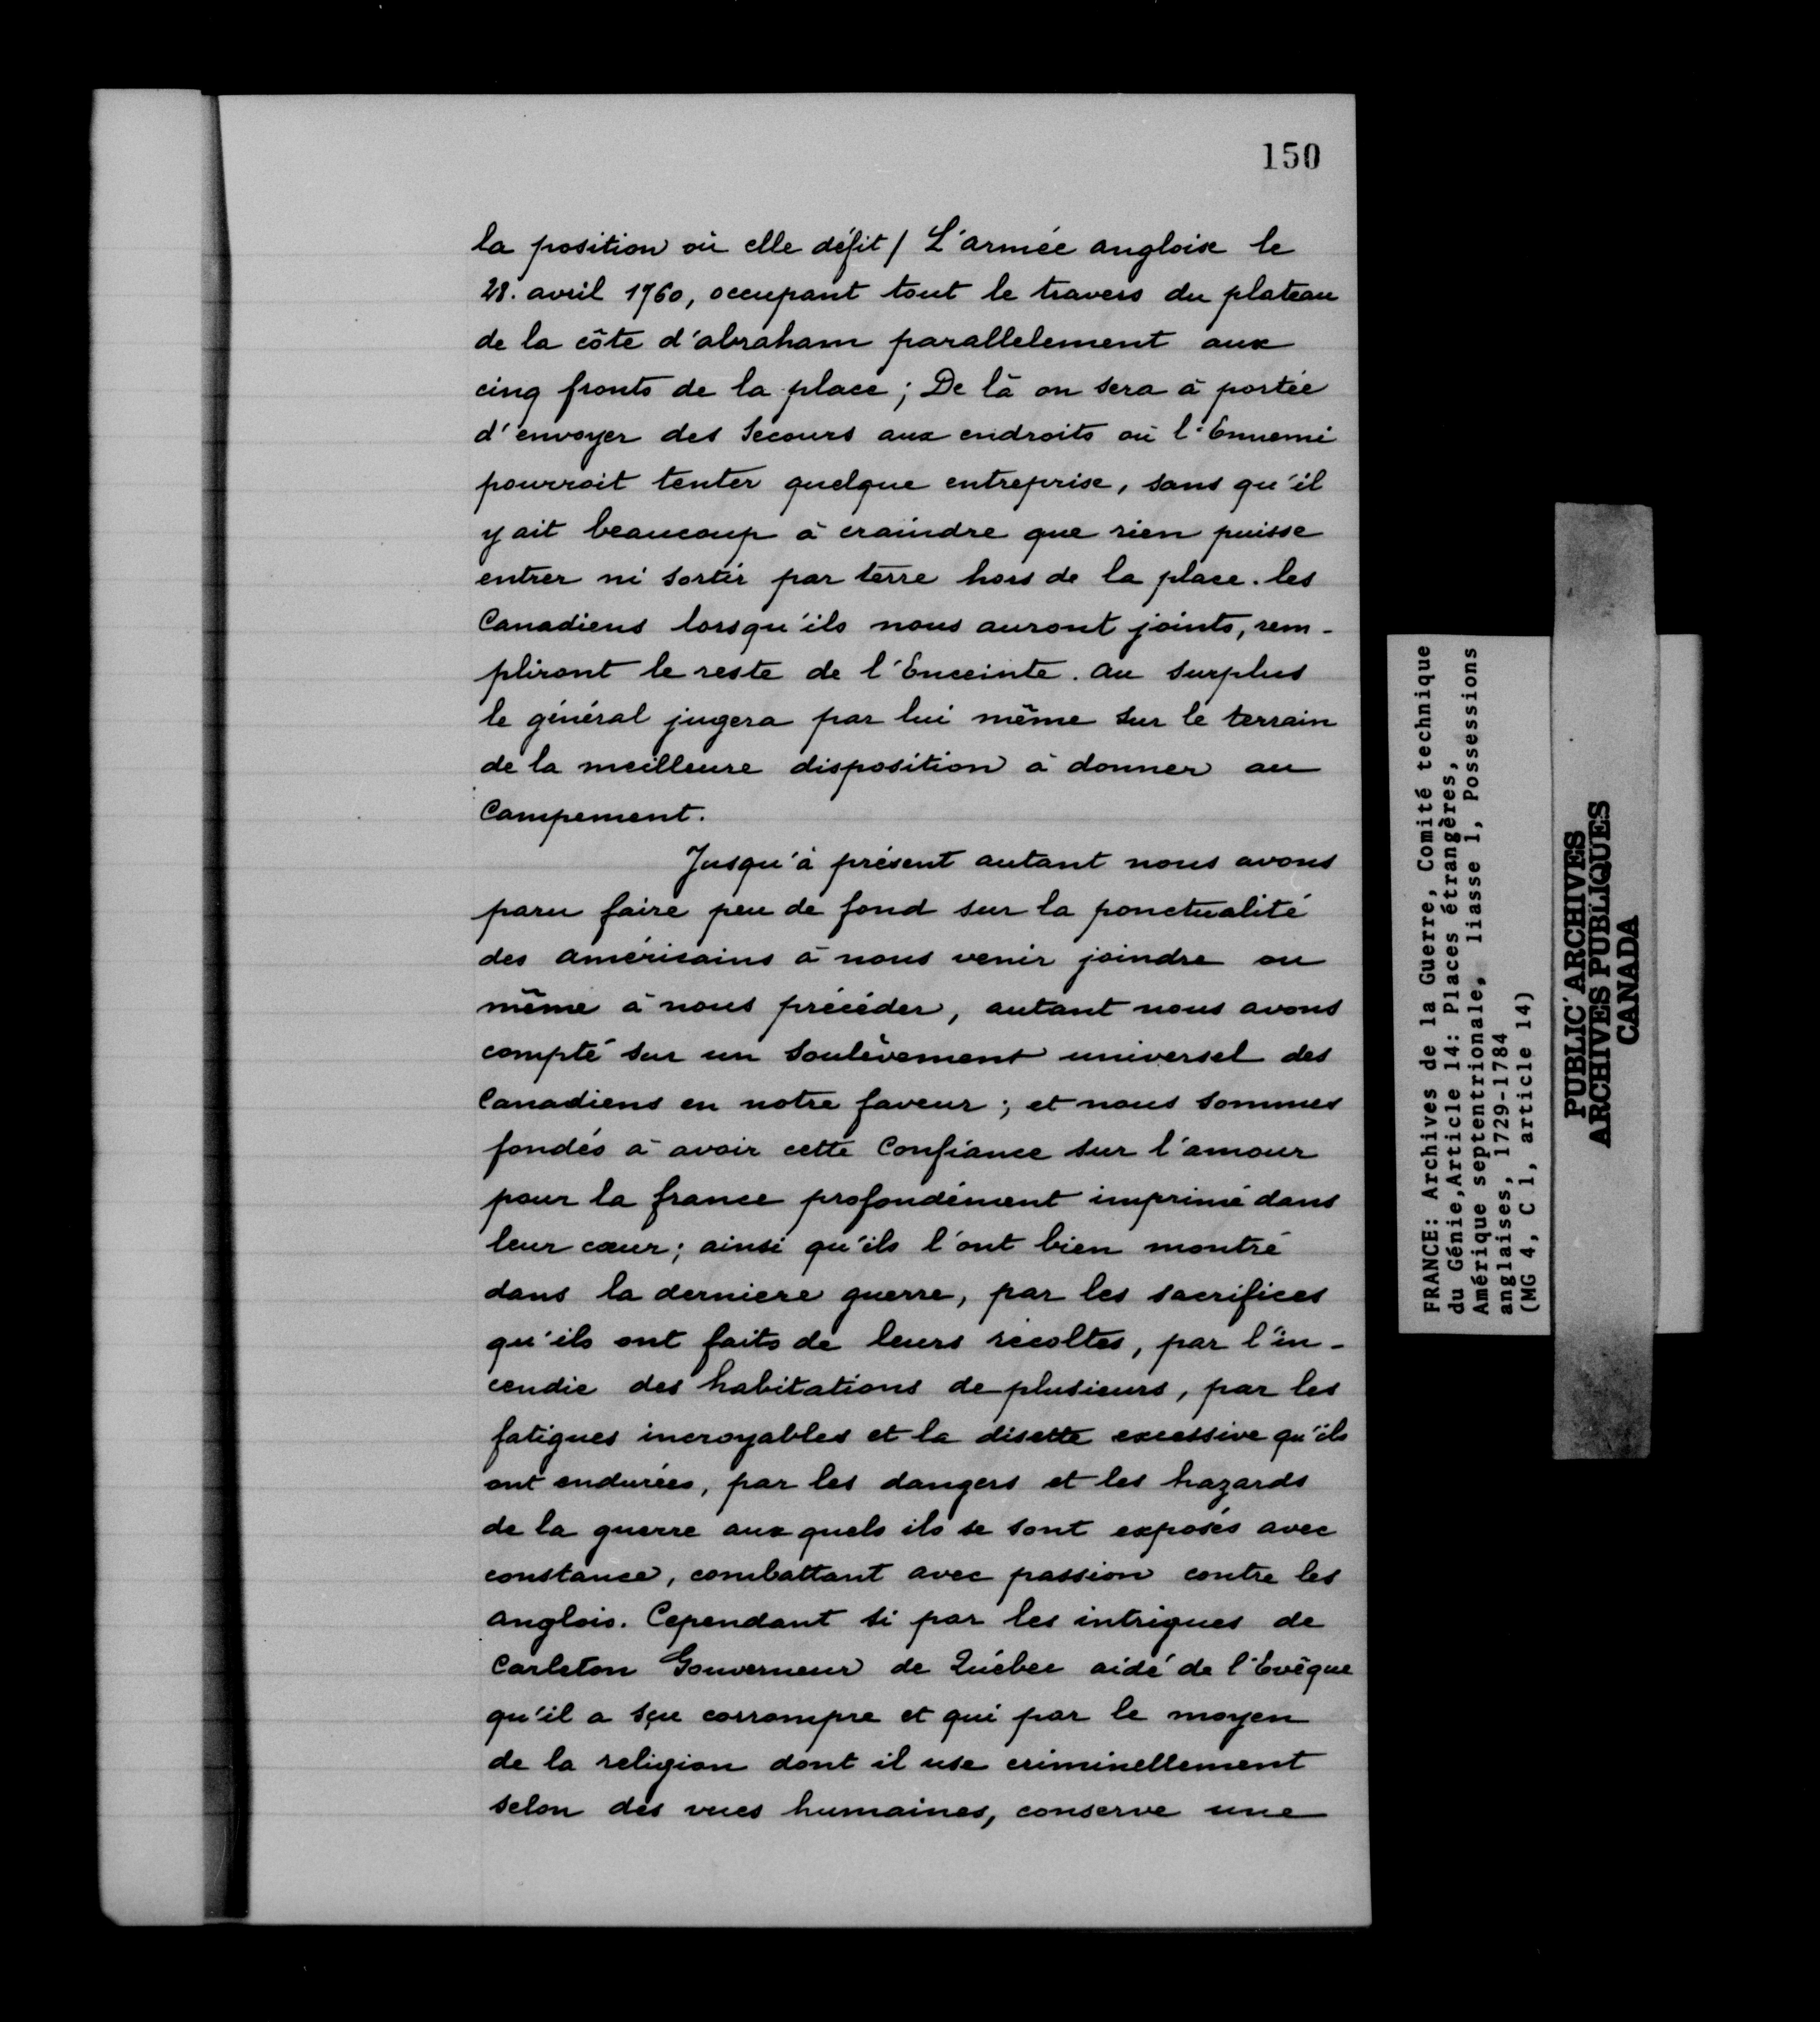 150
la position où elle défit / L'armée angloise le
28. avril 1760, occupant tout le travers du plateau
de la côte d'abraham parallelement aux
cinq fronts de la place ; De là on sera à portée
d'envoyer des Secours aux endroits où l'Ennemi
pourroit tenter quelque entreprise, sans qu'il
y ait beaucoup à craindre que rien puisse
entrer ni sortir par terre hors de la place. les
Canadiens lorsqu'ils nous auront joints, rem-
pliront le reste de l'Enceinte. au surplus
le général jugera par lui même sur le terrain
de la meilleure disposition à donner au
Campement.
Jusqu'à présent autant nous avons
paru faire peu de fond sur la ponctualité
des américains à nous venir joindre ou
même à nous précéder, autant nous avons
compté sur un soulèvement universel des
Canadiens en notre faveur ; et nous sommes
fondés à avoir cette Confiance sur l'amour
pour la france profondément imprimé dans
leur cœur ; ainsi qu'ils l'ont bien montré
dans la derniere guerre, par les sacrifices
qu'ils ont faits de leurs récoltes, par l'in-
cendie des habitations de plusieurs, par les
fatigues incroyables et la disette excessive qu'ils
ont endurées, par les dangers et les hazards
de la guerre aux quels ils se sont exposés avec
constance, combattant avec passion contre les
anglois. Cependant si par les intrigues de
Carleton Gouverneur de Québec aidé de l'Evêque
qu'il a sçu corrompre et qui par le moyen
de la religion dont il use criminellement
selon des vues humaines, conserve une
FRANCE: Archives de la Guerre, Comité technique
du Génie,Article 14: Places étrangères,
Amérique septentrionale, liasse 1, Possessions
anglaises, 1729-1784
(MG 4, C 1, article 14)
PUBLIC ARCHIVES
ARCHIVES PUBLIQUES
CANADA